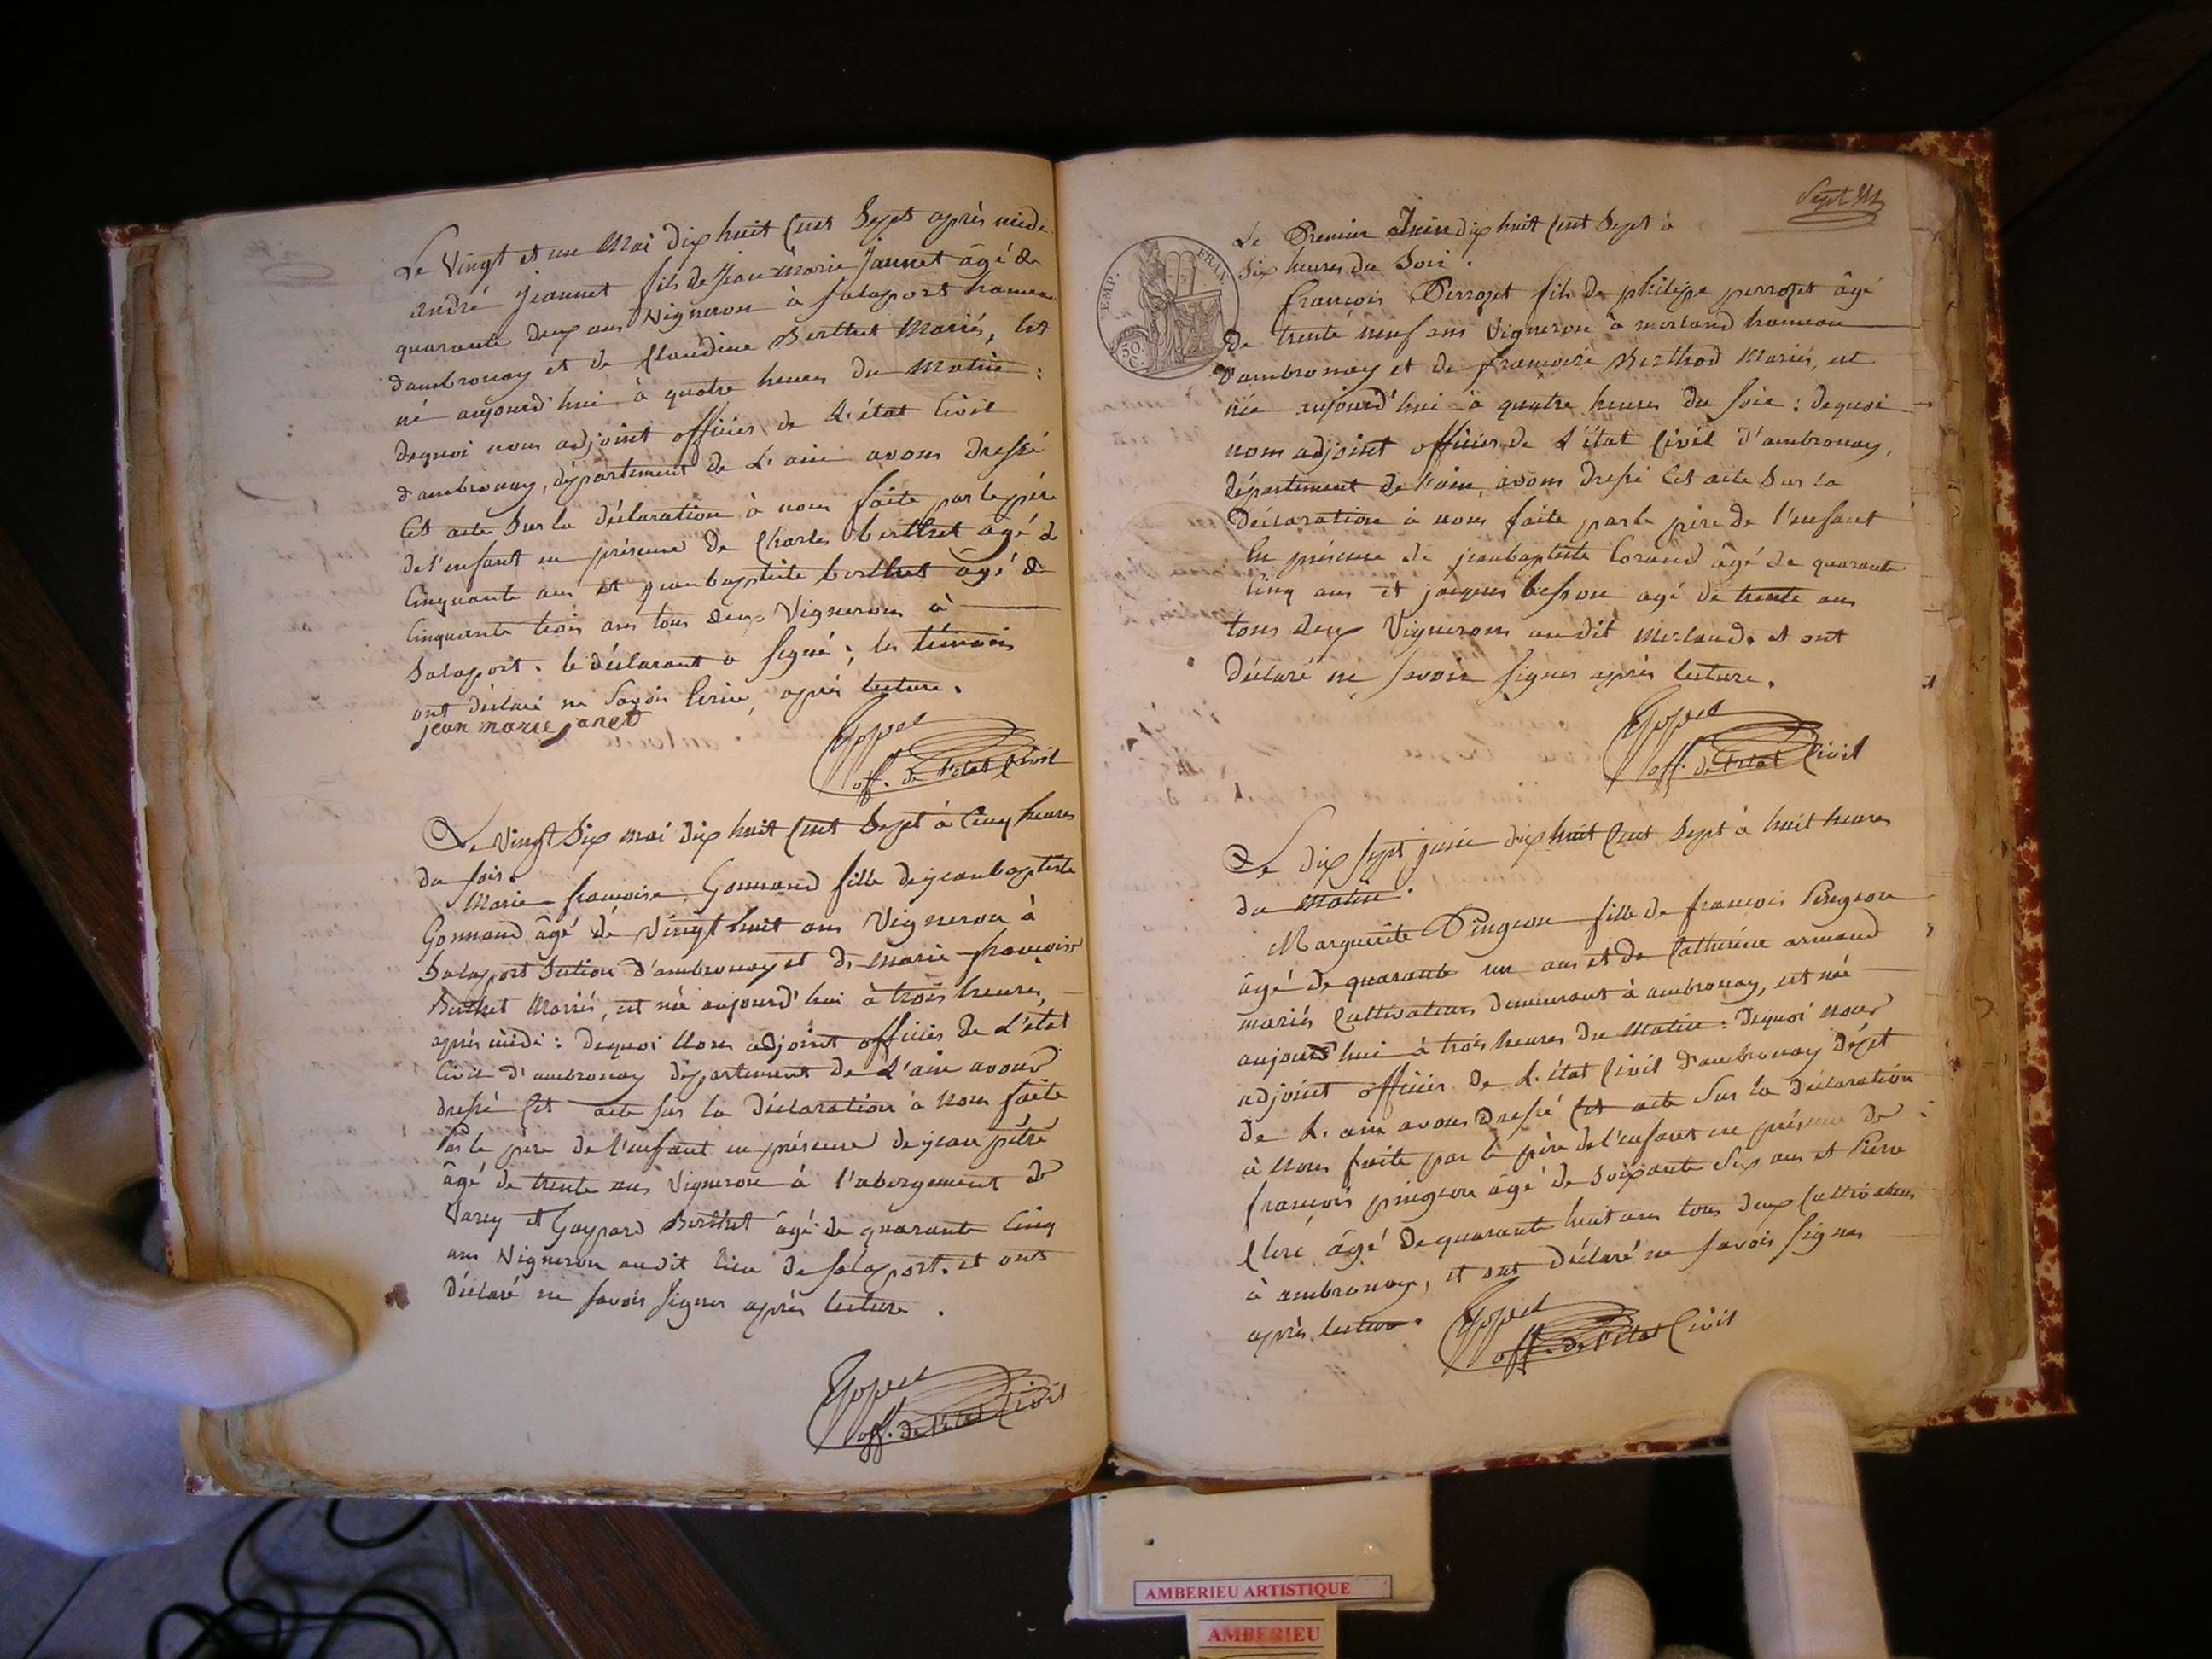 Le Vingt et un Mai dix huit Cent Sept après midi
andré Jeannet fils de Jean marie Jannet âgé de
quarante deux ans Vigneron à Salaport hameau
d'ambronay et de Claudine Berthet Mariés, Est
né aujourd'hui à quatre heures du Matin :
dequoi nous adjoint officier de L'état Civil
d'ambronay, département de L'ain avons dressé
Cet acte Sur la déclaration à nous faite par le père
de l'enfant en présence de Charles berthet âgé de
Cinquante ans et jean baptiste berthet âgé de
Cinquante trois ans tous deux Vignerons à
Salaport. le déclarant a signé ; les témoins
ont déclaré ne Savoir Ecrire, après lecture.
jean marie janet
off. de l'état Civil
Le Vingt Six mai dix huit Cent Sept à Cinq heures
du soir.
Marie françoise Gonnand fille de jean baptiste
Gonnand âgé de Vingt huit ans Vigneron à
Salaport Section d'ambronay et de Marie françoise
Berthet Mariés, est née aujourd'hui à trois heures
après midi : dequoi Nous adjoint officier de L'état
Civil d'ambronay département de L'ain avons
dressé Cet acte sur la déclaration à Nous faite
Par le père de l'enfant en présence de jean pétré
âgé de trente ans Vigneron à l'abergement de
Varey et Gaspard Berthet âgé de quarante Cinq
ans Vigneron audit lieu de Salaport. et ont
déclaré ne savoir signer après lecture.
off. de l'état Civil
Sept
Le Premier Juin dix huit Cent Sept à
Six heures du Soir.
EMP. FRAN.
50 C.
françois Perrozet fils de philipe perrozet âgé
de trente neuf ans Vigneron à merland hameau
d'ambronay et de françoise Berthod Mariés, est
née aujourd'hui à quatre heures du soir : dequoi
nous adjoint officier de L'état Civil d'ambronay,
département de l'ain, avons dressé Cet acte Sur la
Déclaration à nous faite par le père de l'enfant
En présence de jean baptiste Corand âgé de quarante
Cinq ans et jacques besson agé de trente ans
tous deux Vignerons audit Merland. et ont
Déclaré ne savoir signer après lecture.
off. de l'état Civil
Le dix sept juin dix huit Cent Sept à huit heures
du Matin.
Marguerite Pingeon fille de françois Pingeon
âgé de quarante un ans et de Catherine armand
mariés Cultivateurs demeurant à ambronay, est née
aujourd'hui à trois heures du Matin : dequoi nous
adjoint officier de L'état Civil d'ambronay dépt
de L'ain avons dressé Cet acte Sur la déclaration
à Nous faite par le père de l'enfant en présence de
françois pingeon âgé de Soixante Six ans et Pierre
Clerc âgé de quarante huit ans tous deux Cultivateurs
à ambronay, et ont déclaré ne savoir signer
après lecture.
off. de l'état Civil
AMBERIEU ARTISTIQUE
AMBERIEU